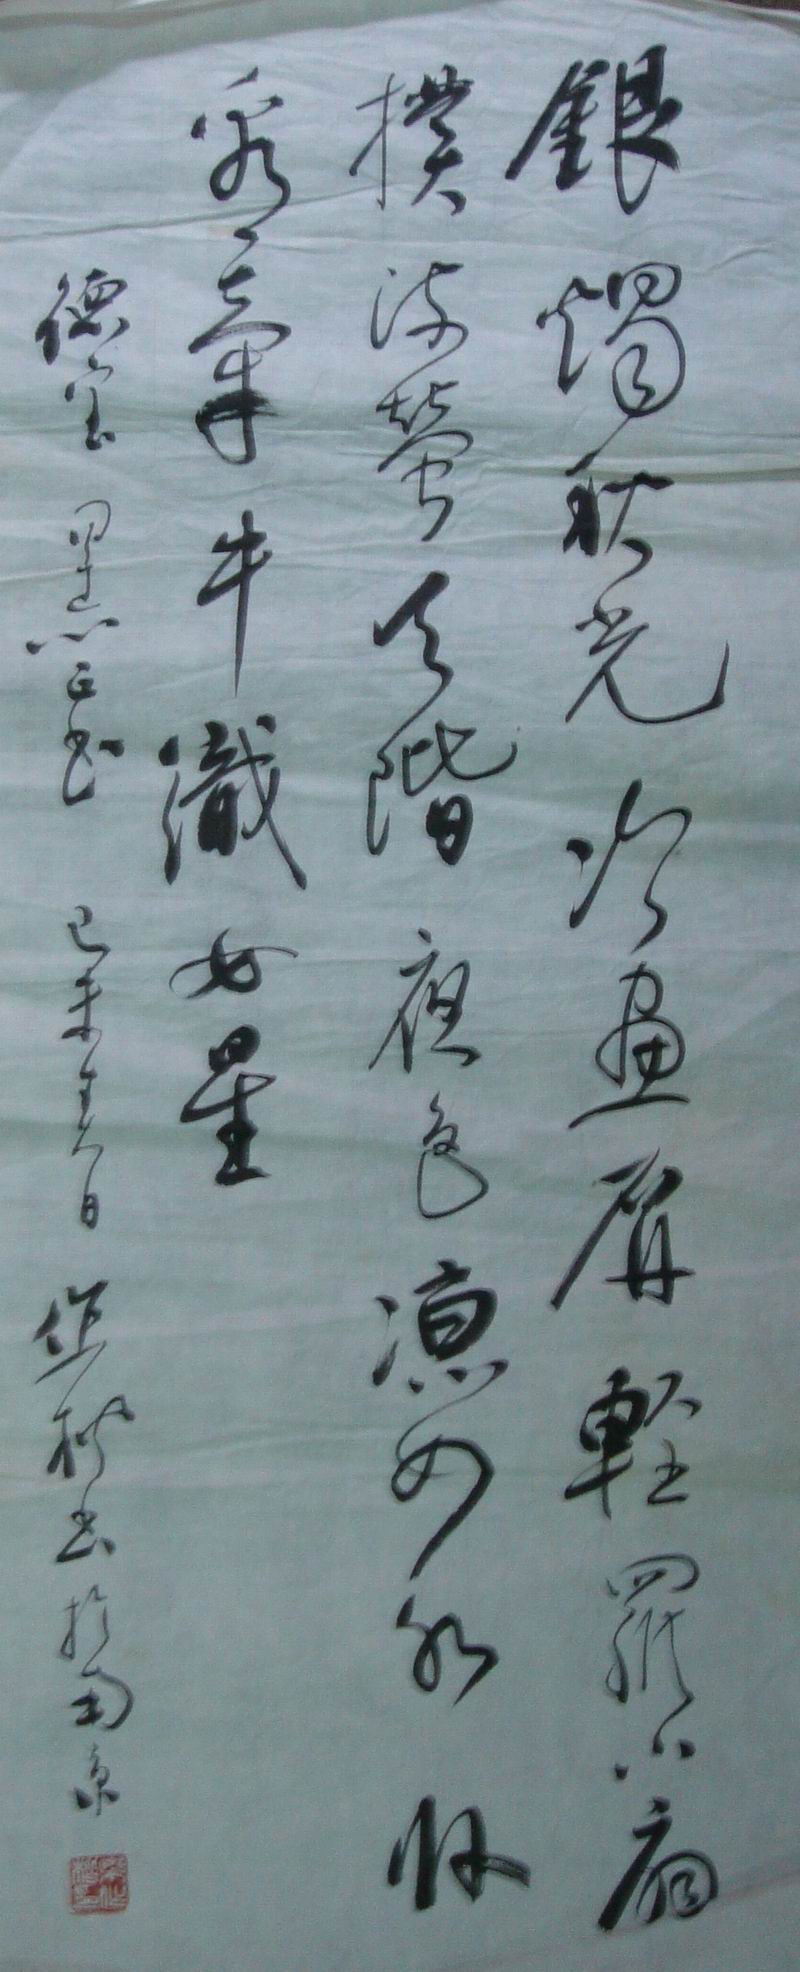 銀燭秋光冷畫屏輕羅小扇
撲流螢天階夜色凉如水臥
看牽牛織女星
德宝 墨正 己未春日 作樹书於南京